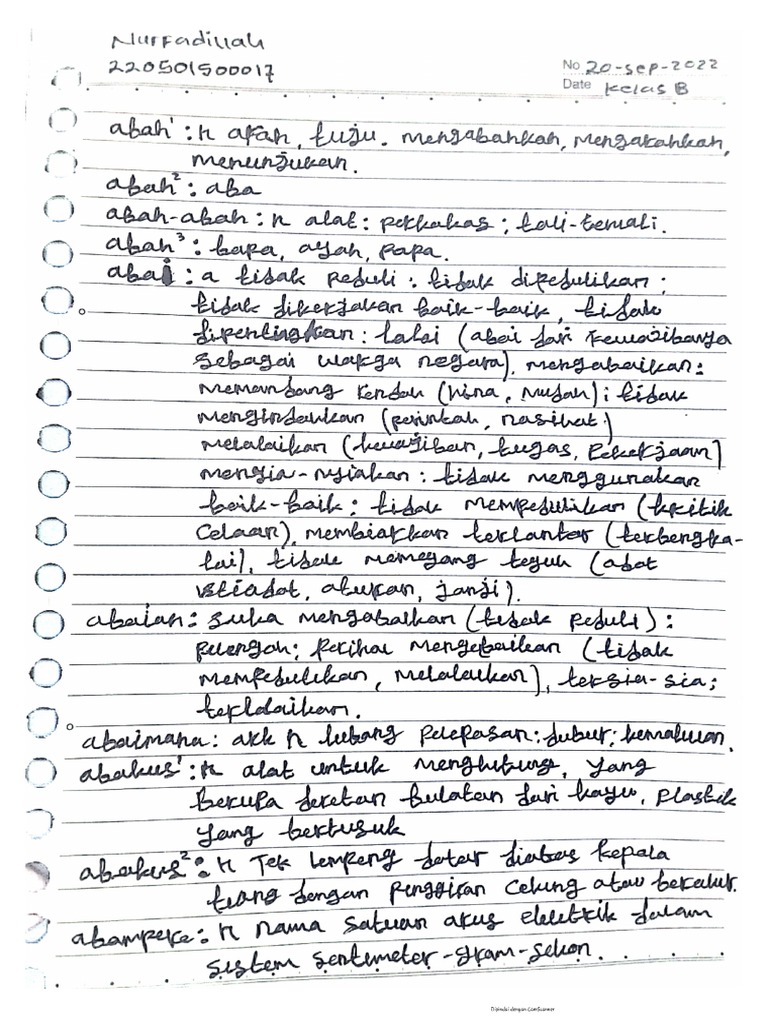 Nurfadillah
220501500017
No 20-sep-2022
Date Kelas B
abah¹ : n arah, tuju. mengabahkan, mengarahkan,
menunjukan.
abah² : aba
abah-abah : n alat : perkakas ; tali-temali.
abah³ : bapa, ayah, papa.
abai : a tidak peduli : tidak dipedulikan ;
tidak dikerjakan baik-baik, tidak
dipentingkan : lalai (abai dari kewajibanya
sebagai warga negara), mengabaikan :
memandang rendah (hina, mudah) ; tidak
mengindahkan (perintah, nasihat.)
melalaikan (kewajiban, tugas, pekerjaan)
mengia-nyiakan : tidak menggunakan
baik-baik : tidak mempedulikan (kritik
celaan), membiarkan terlantar (terbengka-
lai), tidak memegang teguh (adat
istiadat, aturan, janji).
abaian : suka mengabaikan (tidak peduli) :
pelengah ; perihal mengabaikan (tidak
mempedulikan, melalaikan), tersia-sia ;
terlalaikan.
abaimana : ark n lubang pelepasan ; dubur ; kemaluan.
abakus¹ : n alat untuk menghitung, yang
berupa deretan bulatan dari kayu, plastik
yang bertusuk
abakus² : n Tek lempeng datar diatas kepala
tiang dengan penggiran cekung atau beralur.
abampere : n nama satuan arus elektrik dalam
sistem sentimeter-gram-sekon.
Dipindai dengan CamScanner